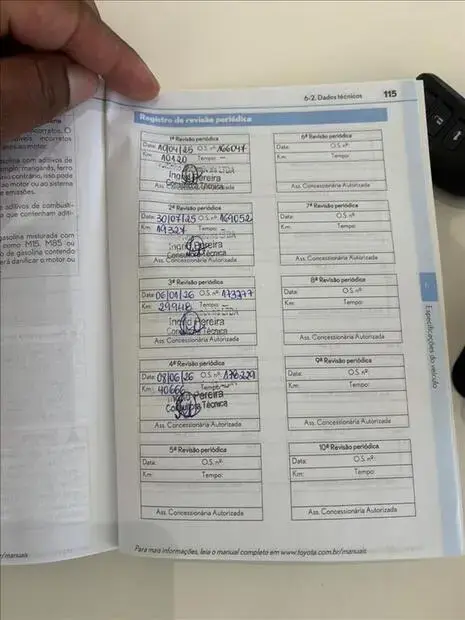 6-2. Dados técnicos 115
Registro de revisão periódica
1ª Revisão periódica
Data: 10/04/25 O.S. nº: 166047
Km: 10420 Tempo: —
Ingrid Pereira
Consultora Técnica
Ass. Concessionária Autorizada
2ª Revisão periódica
Data: 30/07/25 O.S. nº: 169052
Km: 19327 Tempo:
Ingrid Pereira
Consultora Técnica
Ass. Concessionária Autorizada
3ª Revisão periódica
Data: 06/01/26 O.S. nº: 173277
Km: 29948 Tempo: —
Ingrid Pereira
Consultora Técnica
Ass. Concessionária Autorizada
4ª Revisão periódica
Data: 08/06/26 O.S. nº: 178229
Km: 40666 Tempo:
Ingrid Pereira
Consultora Técnica
Ass. Concessionária Autorizada
5ª Revisão periódica
Data: O.S. nº:
Km: Tempo:
Ass. Concessionária Autorizada
6ª Revisão periódica
Data: O.S. nº:
Km: Tempo:
Ass. Concessionária Autorizada
7ª Revisão periódica
Data: O.S. nº:
Km: Tempo:
Ass. Concessionária Autorizada
8ª Revisão periódica
Data: O.S. nº:
Km: Tempo:
Ass. Concessionária Autorizada
9ª Revisão periódica
Data: O.S. nº:
Km: Tempo:
Ass. Concessionária Autorizada
10ª Revisão periódica
Data: O.S. nº:
Km: Tempo:
Ass. Concessionária Autorizada
6
Especificações do veículo
Para mais informações, leia o manual completo em www.toyota.com.br/manuais
incorretos
solina com aditivos de
manganês, ferro
so contrário, isso pode
ao motor ou ao sistema
e emissões.
aditivos de combustí-
que contenham aditi-
gasolina misturada com
como M15, M85 ou
de gasolina contendo
erá danificar o motor ou
r/manuais